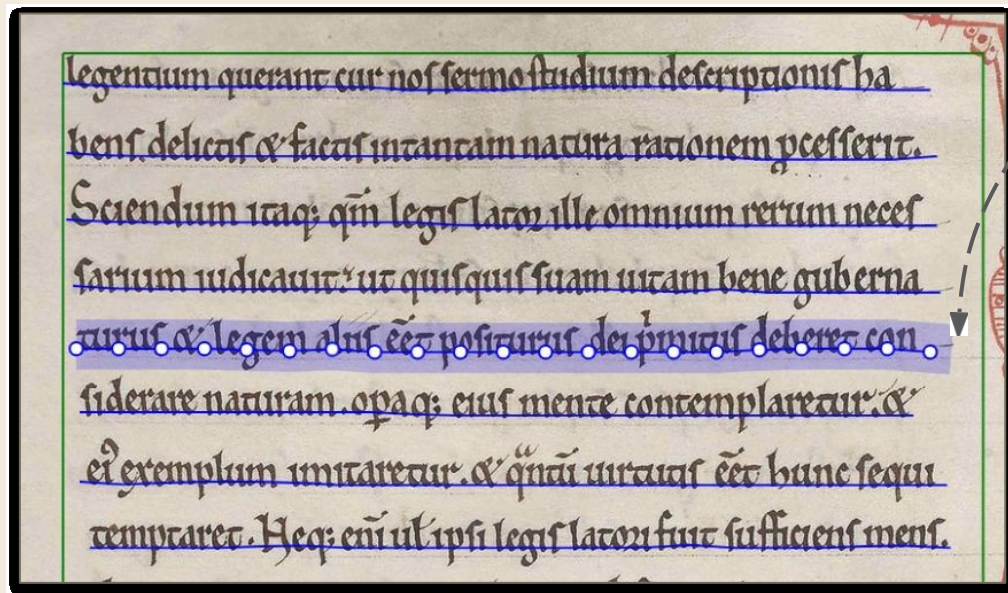 legentium querant cur nos sermo studium descriptionis ha
bens delictis & factis intantam natura rationem ꝓcesserit.
Sciendum itaq; qm̄ legis lator ille omnium rerum neces
sarium iudicauit: ut quisquis suam uitam bene guberna
turus & legem aliis eēt positurus dei pͥmitus deberet con
siderare naturam. opaq; eius mente contemplaretur. &
exemplum imitaretur. & uirtutis eēt hunc sequi
temptaret. Heq; eni̅ ul ipsi legis latori fuit sufficiens mens.